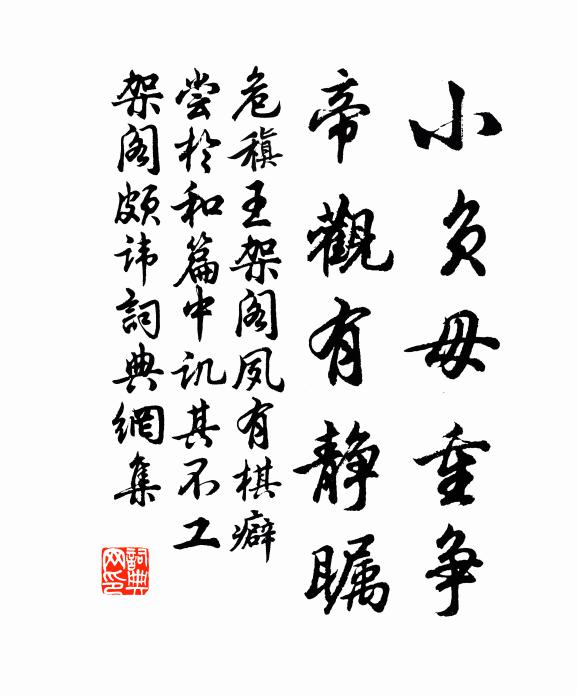 小負毋重争
帝觀有静瞩
危稹王架阁夙有棋癖
尝於和篇中讥其不工
架阁颇讳詞典網集
詞典网印